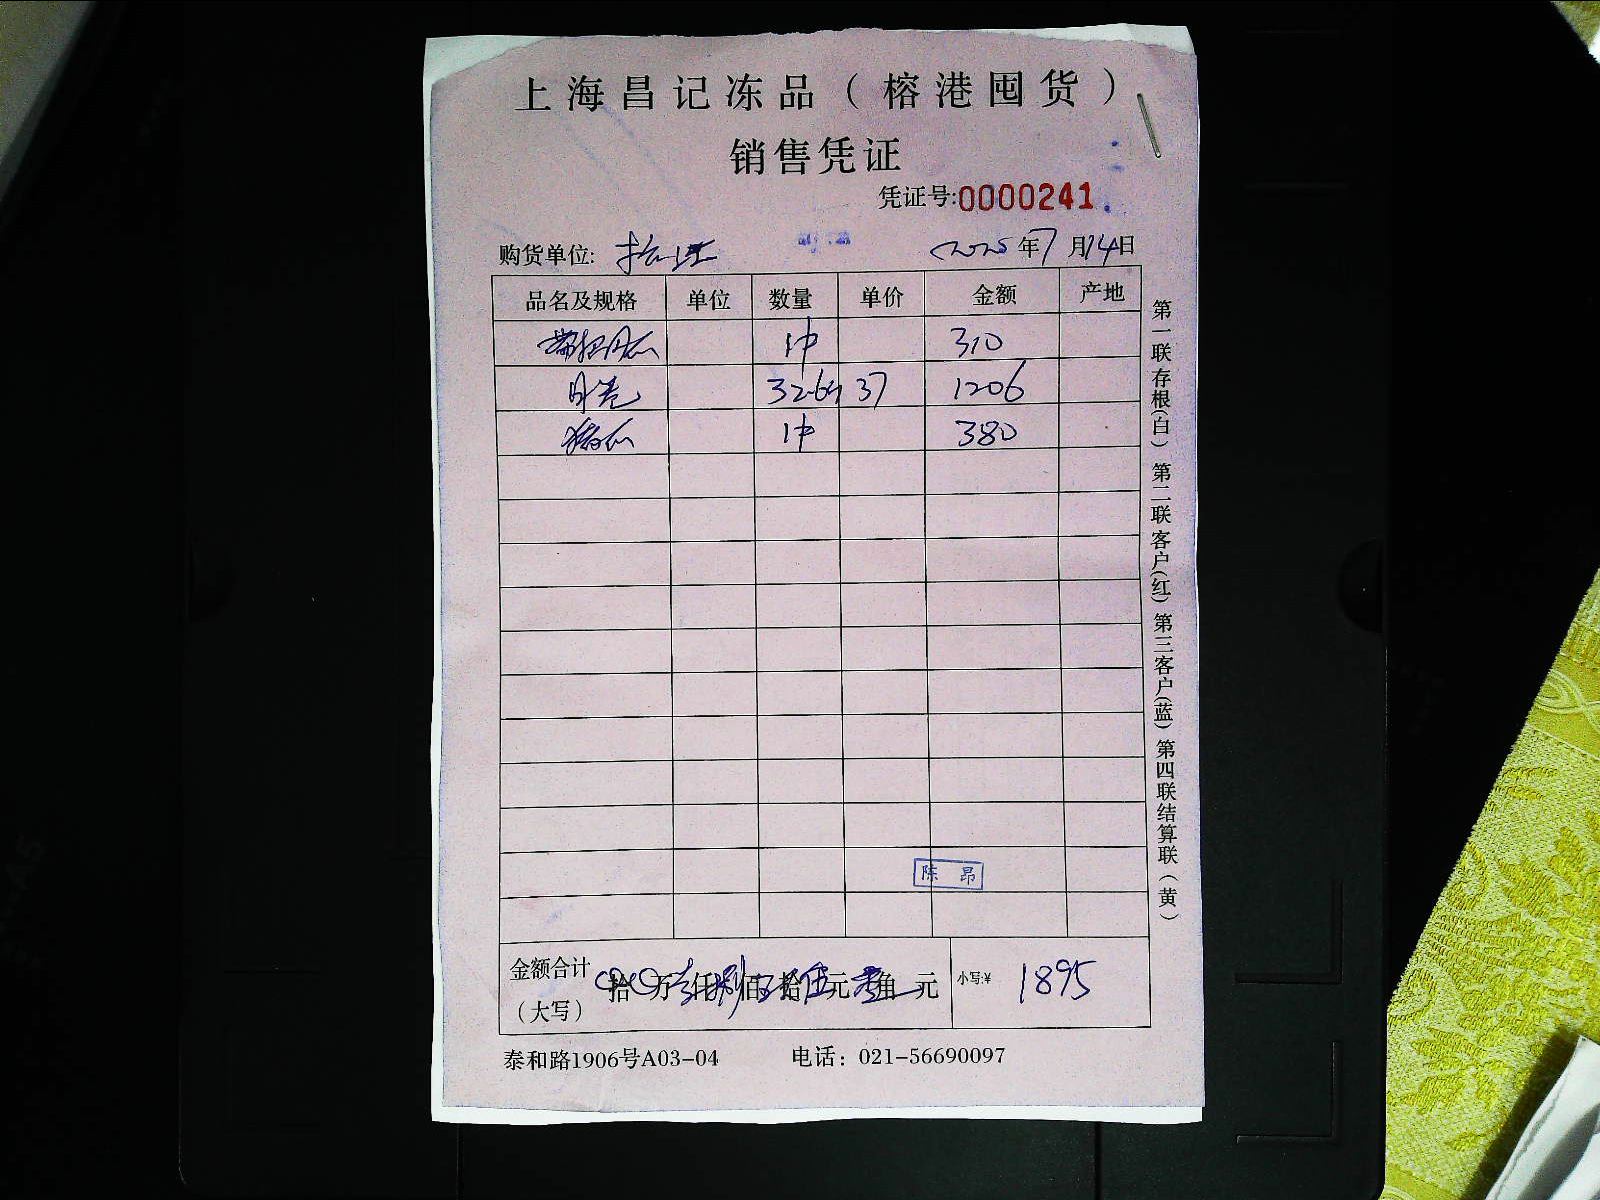 上海昌记冻品（榕港囤货）
销售凭证
凭证号:0000241
购货单位: 2025年7月14日
品名及规格 单位 数量 单价 金额 产地
1件 310
32.6 37 1206
1件 380
陈昂
金额合计（大写） 拾 万 仟 佰 拾 元 角 元 小写:¥ 1895
泰和路1906号A03-04 电话：021-56690097
第一联存根(白) 第二联客户(红) 第三客户(蓝) 第四联结算联(黄)